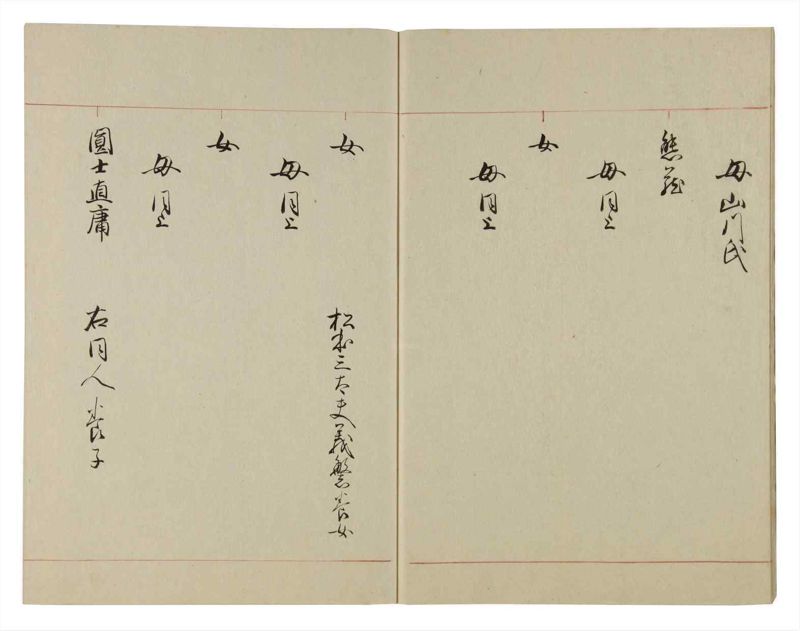 母山川氏
熊蔵
母同上
女
母同上
女　松本三太夫義繁養女
母同上
女
母同上
圓士直庸　右同人養子